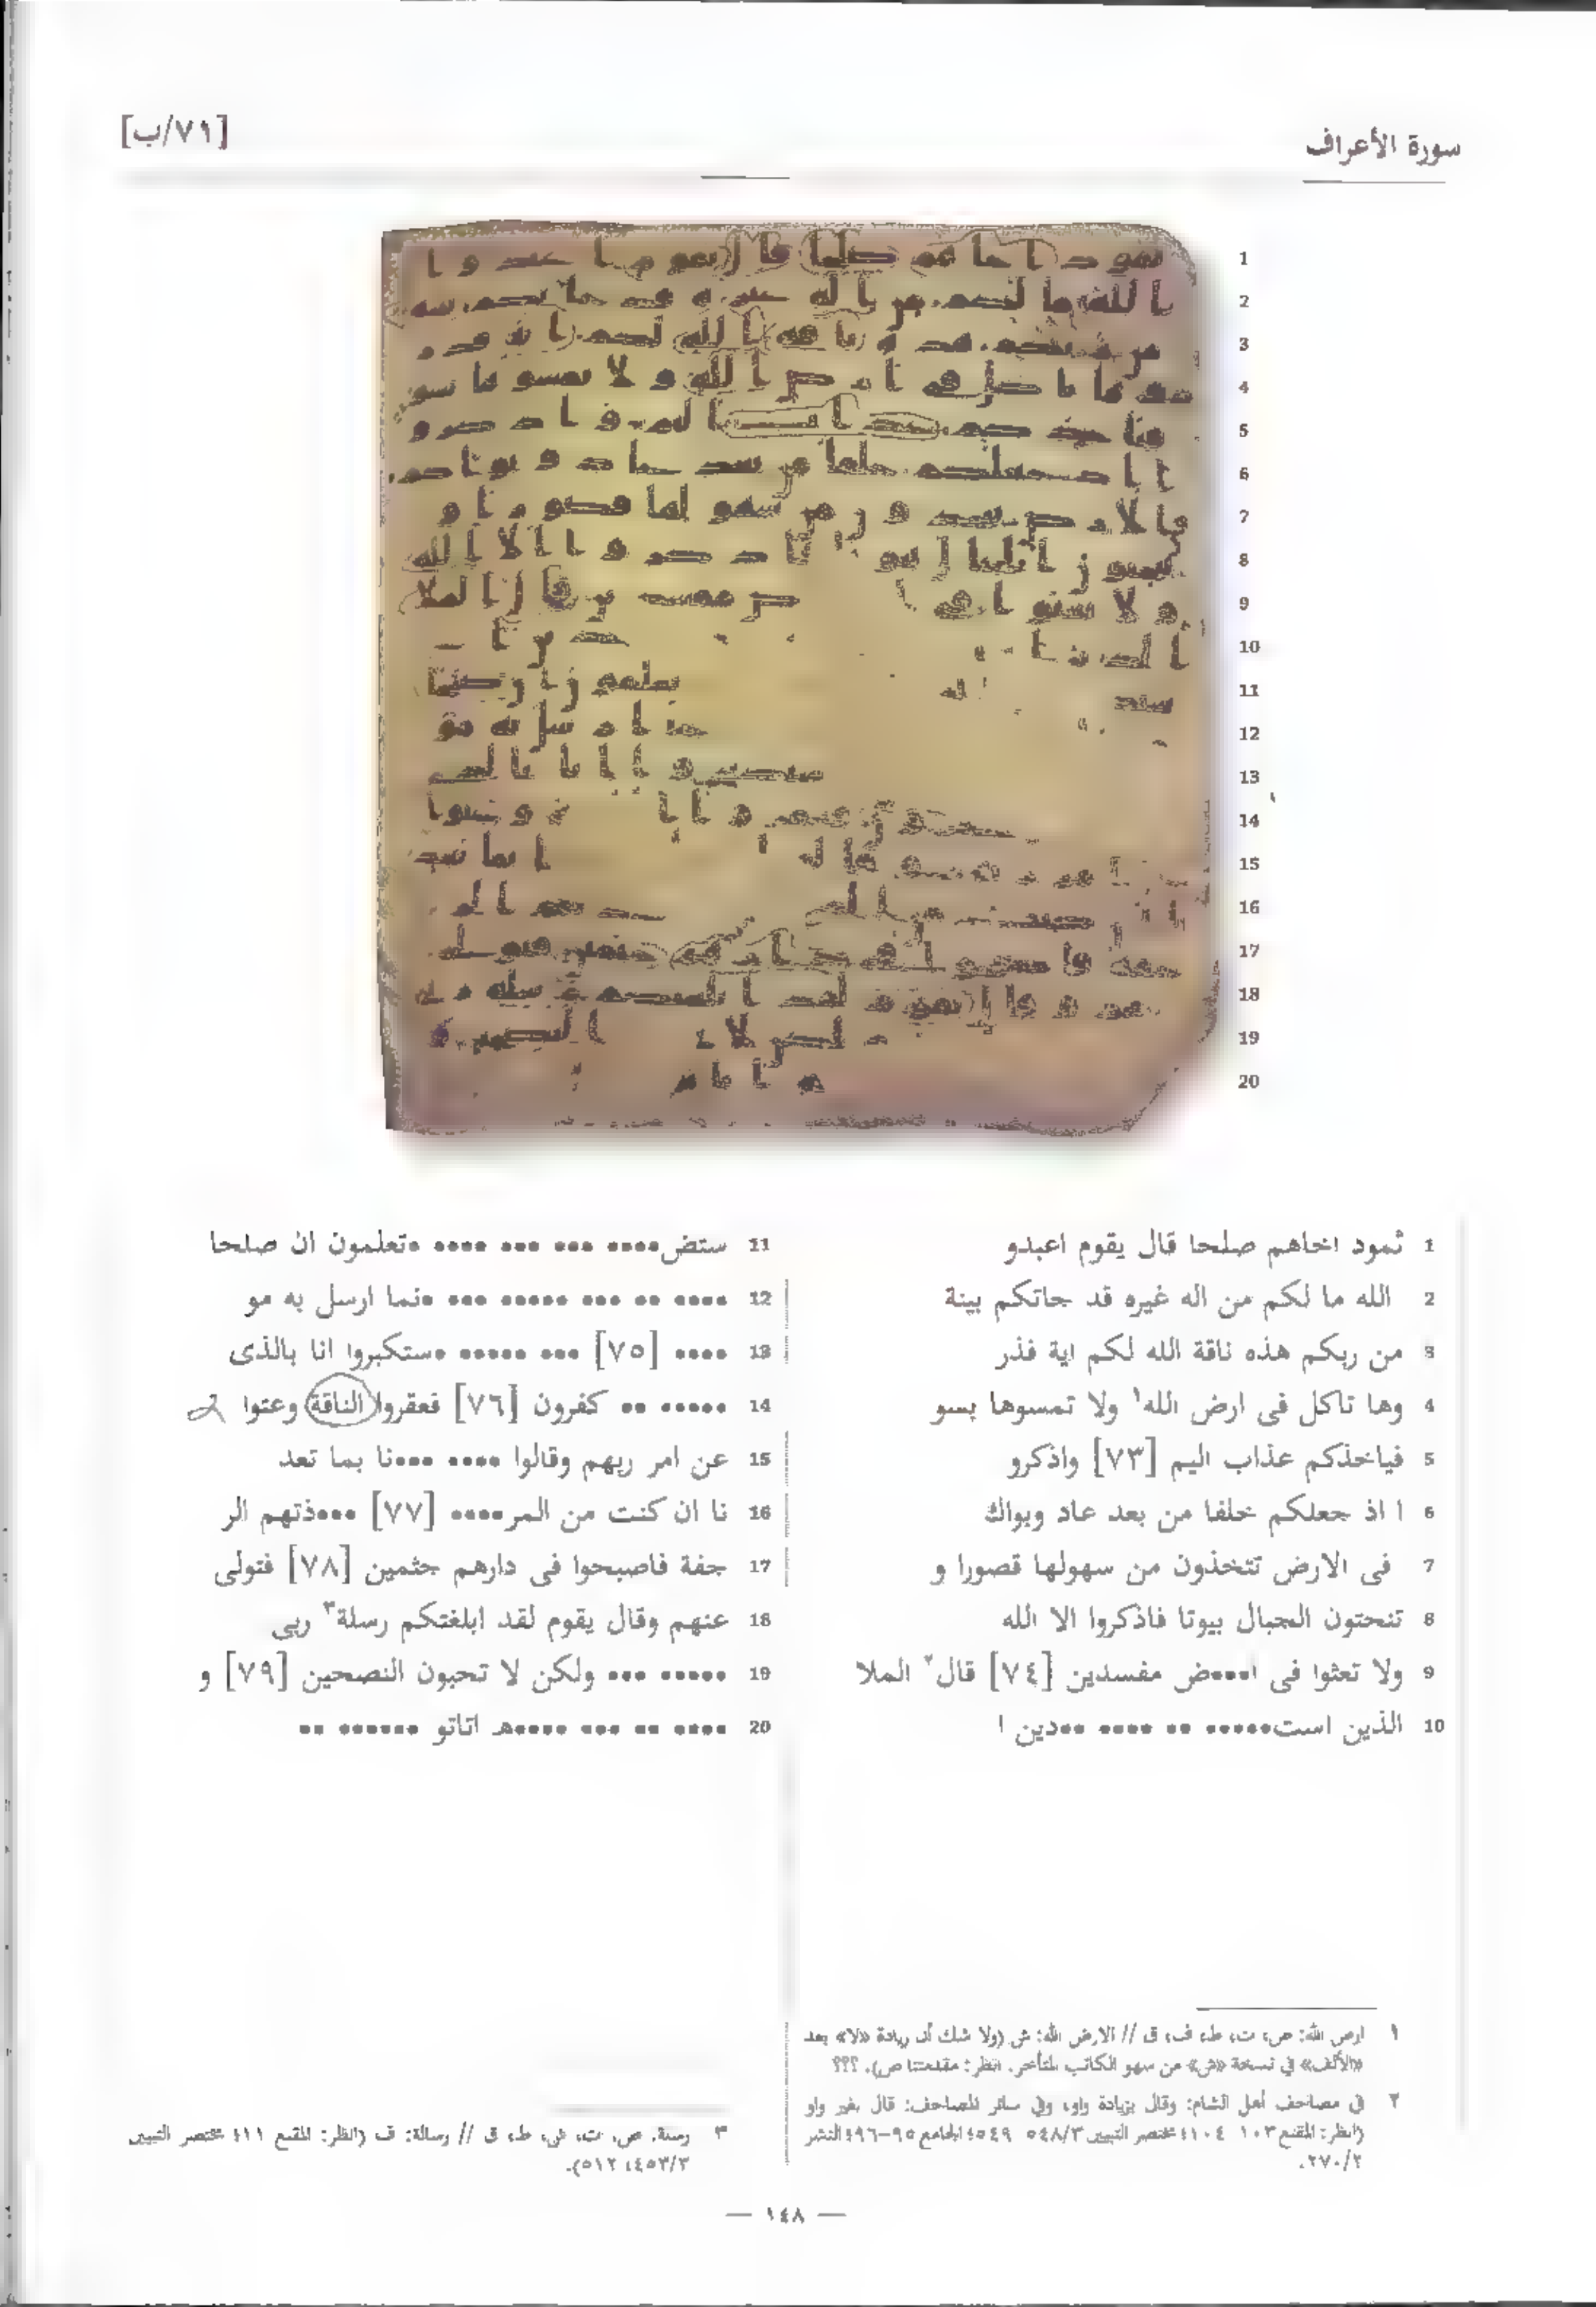 سورة الأعراف
[٧١/ب]
1 ثمود اخاهم صلحا قال يقوم اعبدو
2 الله ما لكم من اله غيره قد جاتكم بينة
3 من ربكم هذه ناقة الله لكم اية فذر
4 وها تاكل فى ارض الله١ ولا تمسوها بسو
5 فياخذكم عذاب اليم [٧٣] واذكرو
6 ا اذ جعلكم خلفا من بعد عاد وبواك
7 فى الارض تتخذون من سهولها قصورا و
8 تنحتون الجبال بيوتا فاذكروا الا الله
9 ولا تعثوا فى ا•••ض مفسدين [٧٤] قال٢ الملا
10 الذين است••••• •• •••• ••دين ا
11 ستض•••• ••• ••• •••• •تعلمون ان صلحا
12 •••• •• ••• ••••• ••• •نما ارسل به مو
13 •••• [٧٥] ••• ••••• •ستكبروا انا بالذى
14 ••••• •• كفرون [٧٦] فعقروا الناقة وعتوا
15 عن امر ربهم وقالوا •••• •••نا بما تعد
16 نا ان كنت من المر•••• [٧٧] •••ذتهم الر
17 جفة فاصبحوا فى دارهم جثمين [٧٨] فتولى
18 عنهم وقال يقوم لقد ابلغتكم رسلة٣ ربى
19 ••••• ••• ولكن لا تحبون النصحين [٧٩] و
20 •••• •• ••• ••••ه اتاتو •••••• ••
١ ارض الله: ص، ت، ط، ف، ق // الارض الله: ش (ولا شك أن زيادة «لا» بعد
«الألف» في نسخة «ش» من سهو الكاتب المتأخر. انظر: مقدمتنا ص). ؟؟؟
٢ في مصاحف أهل الشام: وقال بزيادة واو، وفي سائر المصاحف: قال بغير واو
(انظر: المقنع ١٠٣، ١٠٤؛ مختصر التبيين ٥٤٨/٣، ٥٤٩؛ الجامع ٩٥-٩٦؛ النشر
٢٧٠/٢.
٣ رسلة: ص، ت، ش، ط، ق // رسالة: ف (انظر: المقنع ١١؛ مختصر التبيين
٤٥٣/٣، ٥١٢).
— ١٤٨ —